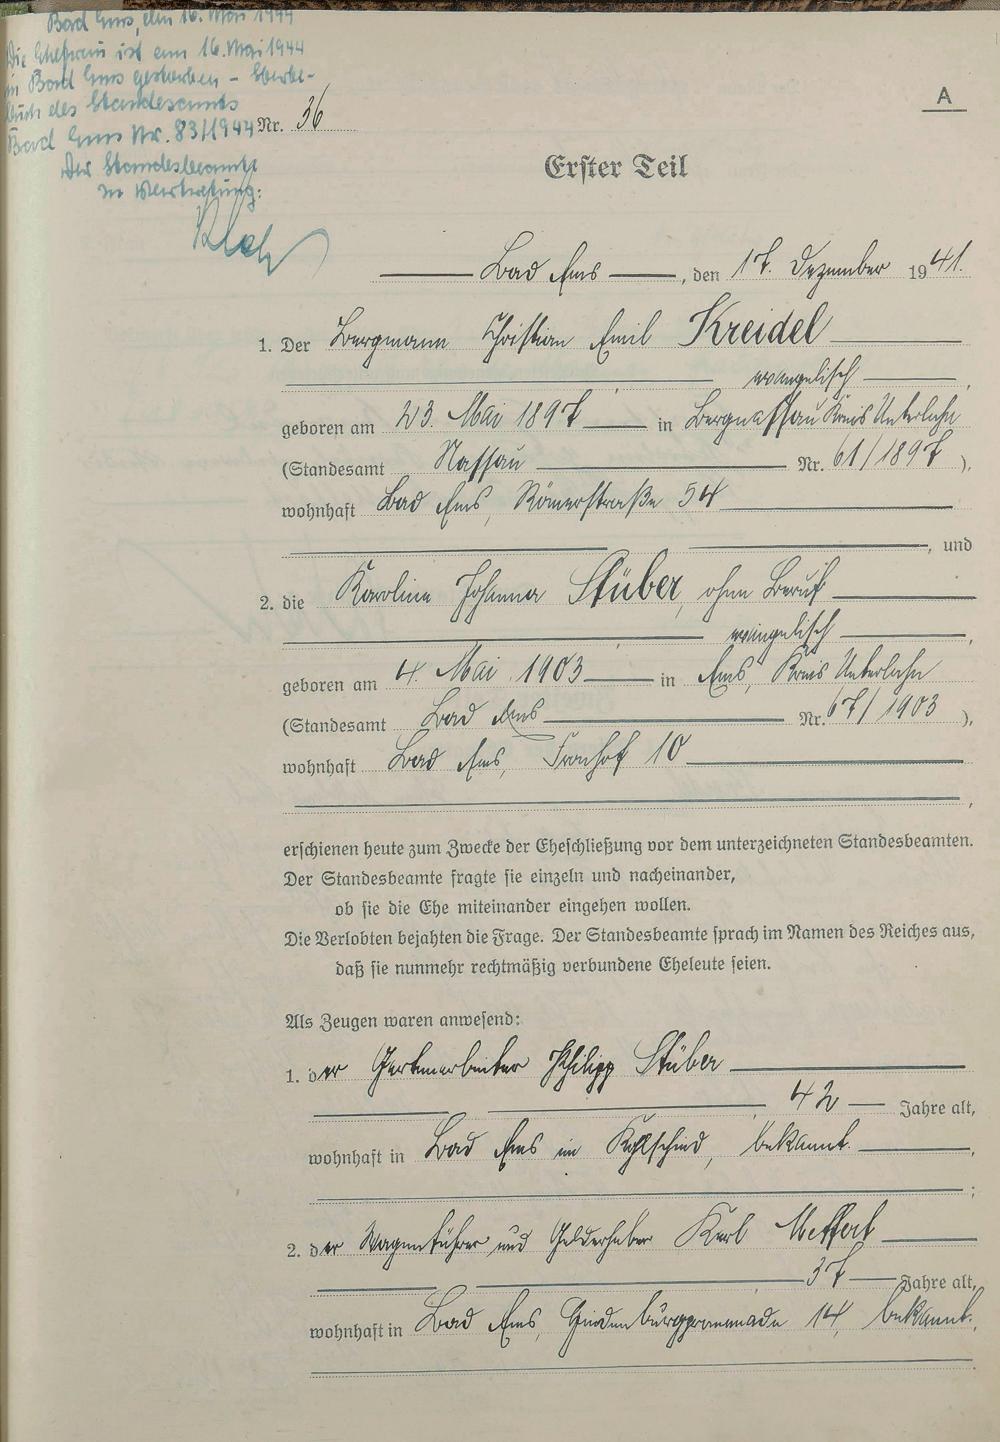 Bad Ems, den 16. Mai 1944
Die Ehefrau ist am 16. Mai 1944
in Bad Ems gestorben – Sterbe-
buch des Standesamts
Bad Ems Nr. 83/1944
Der Standesbeamte
In Vertretung:
A
Nr. 36
Erster Teil
Bad Ems, den 17. Dezember 1941.
1. Der Bergmann Christian Emil Kreidel
evangelisch,
geboren am 23. Mai 1897 in Bergnassau Kreis Unterlahn
(Standesamt Nassau Nr. 61/1897),
wohnhaft Bad Ems, Römerstraße 54
, und
2. die Karoline Johanna Stüber, ohne Beruf
evangelisch,
geboren am 4. Mai 1903 in Ems, Kreis Unterlahn
(Standesamt Bad Ems Nr. 67/1903),
wohnhaft Bad Ems, Fronhof 10
,
erschienen heute zum Zwecke der Eheschließung vor dem unterzeichneten Standesbeamten.
Der Standesbeamte fragte sie einzeln und nacheinander,
ob sie die Ehe miteinander eingehen wollen.
Die Verlobten bejahten die Frage. Der Standesbeamte sprach im Namen des Reiches aus,
daß sie nunmehr rechtmäßig verbundene Eheleute seien.
Als Zeugen waren anwesend:
1. der Gartenarbeiter Philipp Stüber
42 Jahre alt,
wohnhaft in Bad Ems im, bekannt.,
;
2. der Wagenführer und Karl Meffert
37 Jahre alt,
wohnhaft in Bad Ems, Hindenburgpromenade 14, bekannt.